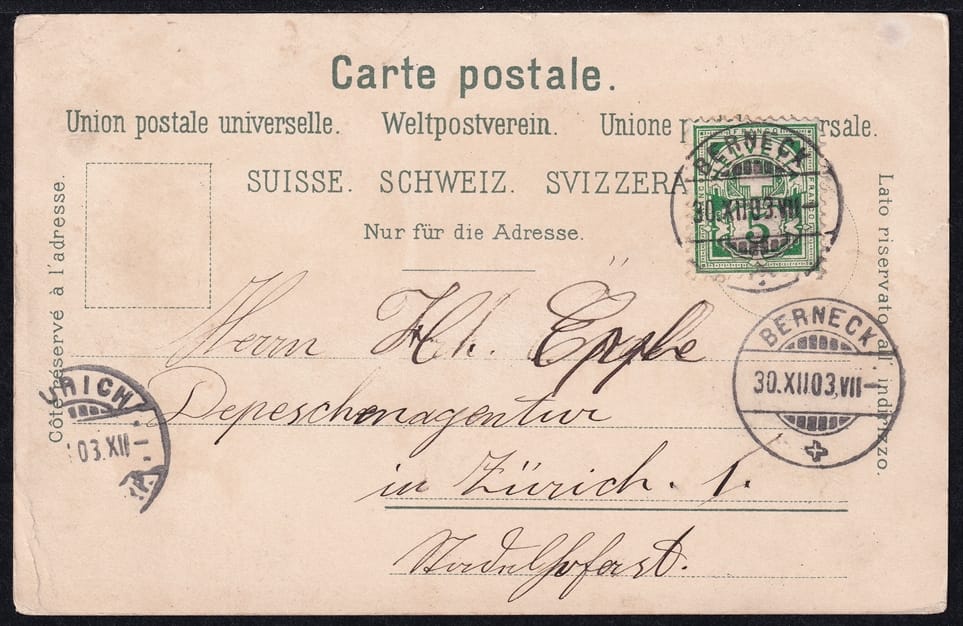 Carte postale.
Union postale universelle. Weltpostverein. Unione
rsale.
SUISSE. SCHWEIZ. SVIZZERA
Nur für die Adresse.
Côté réservé à l'adresse.
Lato riservato all' indirizzo.
BERNECK
HELVETIA
30.XII.03.VII-
5
BERNECK
30.XII.03.VII-
RICH
03.XII
Herrn Hh.
Depeschenagentur
in Zürich. 1.